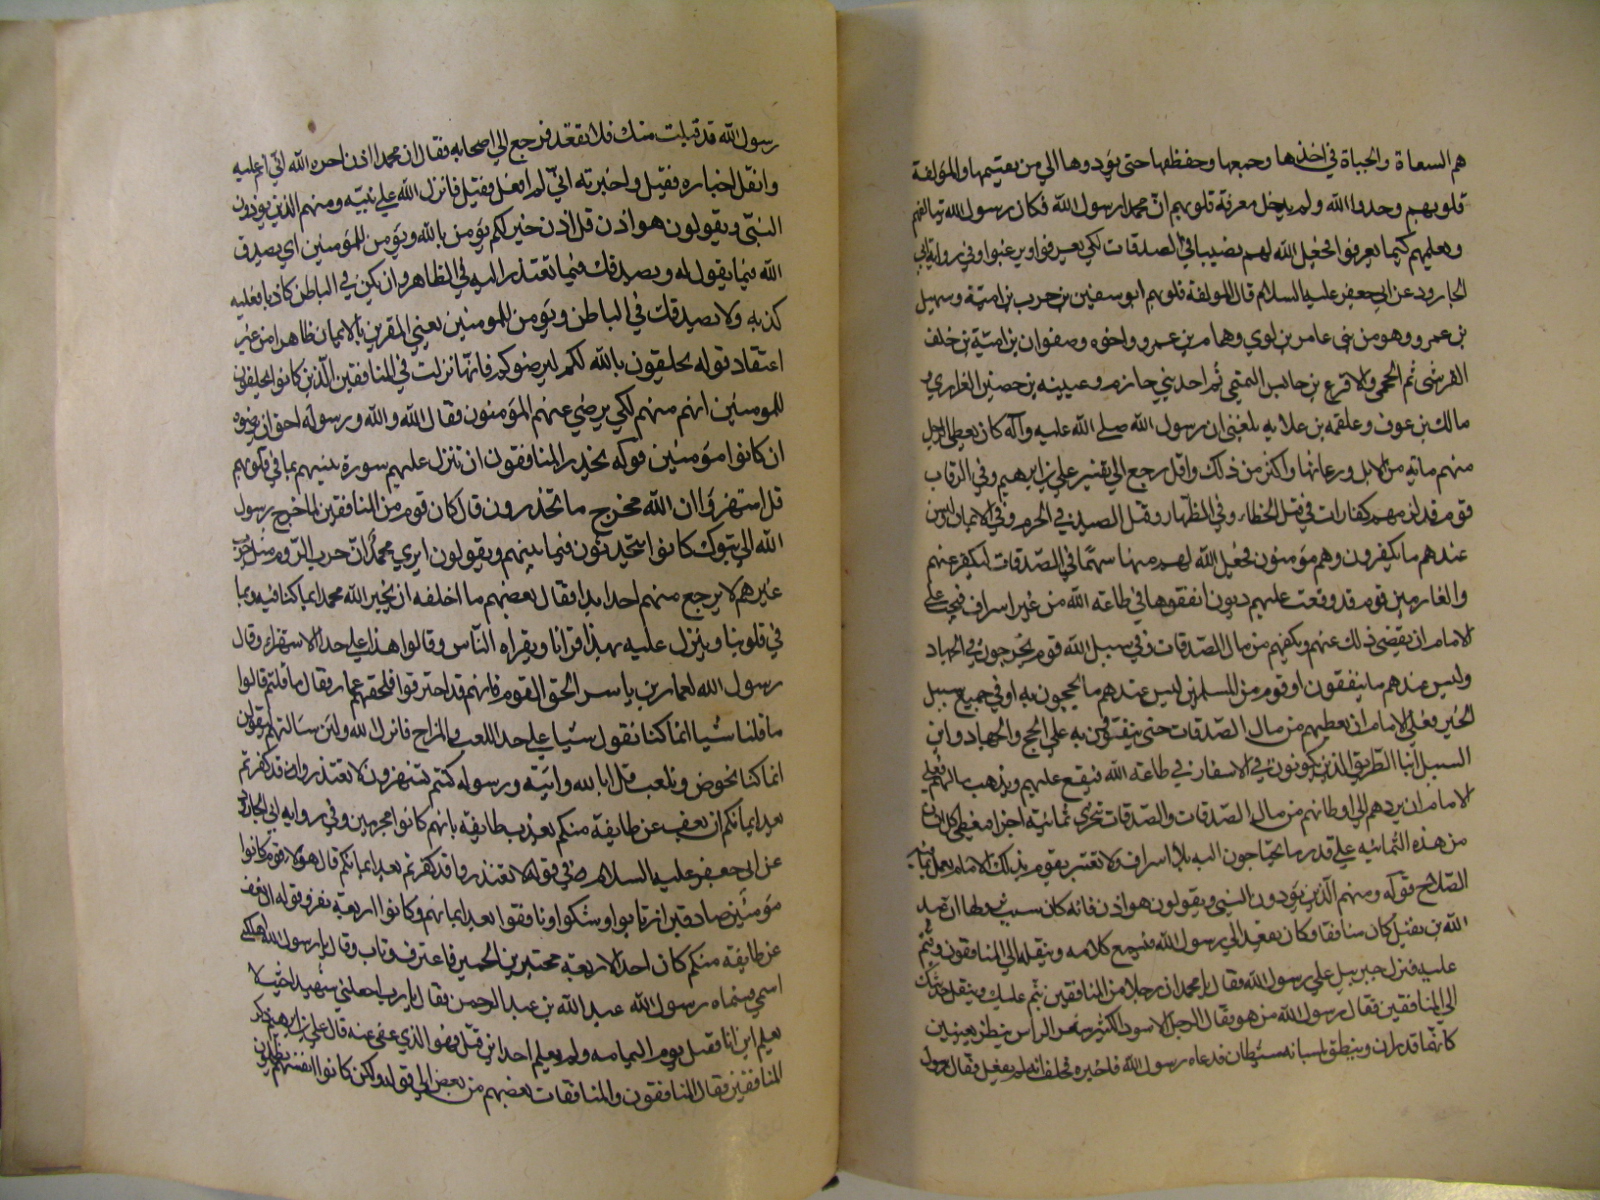 هم السعاة والجباة في اخذها وجمعها وحفظها حتى يؤدوها الي من يقسمها والمؤلفة
قلوبهم قوم وحدوا الله ولم يدخل معرفة قلوبهم انّ محمدا رسول الله فكان رسول الله يتالفهم
ويعلمهم كيما يعرفوا فجعل الله لهم نصيبا في الصدقات لكي يعرفوا ويرغبوا وفي رواية ابي
الجارود عن ابي جعفر عليه السلام قال المؤلفة قلوبهم ابو سفين بن حرب بن امية وسهيل
بن عمرو وهو من بني عامر بن لوي وهمام بن عمرو واخوه وصفوان بن امية بن خلف
القرشي ثم الجمحي والاقرع بن حابس التميمي ثم احد بني حازم وعيينه بن حصين الفزاري و
مالك بن عوف وعلقمه بن علايه بلغني ان رسول الله صلي الله عليه وآله كان يعطي الرجل
منهم مائه من الابل ورعاتها واكثر من ذلك واقل رجع الي تفسير علي بن ابرهيم وفي الرقاب
قوم قد لزمهم كفارات في قتل الخطاء وفي الظهار وقتل الصيد في الحرم وفي الايمان وليس
عندهم ما يكفرون وهم مؤمنون فجعل الله لهم منها سهما في الصدقات ليكفر عنهم
والغارمين قوم قد وقعت عليهم ديون انفقوها في طاعة الله من غير اسراف فيجب علي
الامام ان يقضي ذلك عنهم ويكفيهم من مال الصدقات وفي سبيل الله قوم يخرجون في الجهاد
وليس عندهم ما ينفقون او قوم من المسلمين ليس عندهم ما يحجون به او في جميع سبيل
الخير فعلي الامام ان يعطيهم من مال الصدقات حتى ينفقون به علي الحج والجهاد وابن
السبيل ابنا الطريق الذين يكونون في الاسفار في طاعة الله فيقع عليهم ويذهب مالهم فعلي
الامام ان يردهم الي اوطانهم من مال الصدقات والصدقات تتجزي ثمانية اجزا فيعطي كل انسان
من هذه الثمانيه علي قدر ما يحتاجون اليه بلا اسراف ولا تقتير يقوم بذلك الامام يعمل بما فيه
الصلاح قوله ومنهم الذين يؤدون النبي ويقولون هو اذن فانه كان سبب نزولها ان عبد
الله بن نفيل كان منافقا وكان يقعد الي رسول الله فيسمع كلامه وينقله الي المنافقون وينم
عليه فنزل جبرييل علي رسول الله فقال يا محمد ان رجلا من المنافقين ينم عليك وينقل حديثك
الي المنافقين فقال رسول الله من هو فقال الرجل الاسود الكثير شعر الراس ينظر بعينين
كانهما قدران وينطق بلسانه شيطان فدعاه رسول الله فاخبره فحلف انه لم يفعل فقال رسول
رسول الله قد قبلت منك فلا تقعد فرجع الي اصحابه فقال ان محمدا اذن اخبره الله اني انم عليه
وانقل اخباره فقبل واخبرته اني لم افعل فقبل فانزل الله علي نبيه ومنهم الذين يوذون
النبي ويقولون هو اذن قل اذن خير لكم يؤمن بالله ويؤمن للمؤمنين اي يصدق
الله فيما يقول له ويصدقك فيما تعتذر اليه في الظاهر وان يكن في الباطن كاذبا فعليه
كذبه ولا يصدقك في الباطن ويؤمن للمومنين يعني المقرين بالايمان ظاهرا من غير
اعتقاد قوله يحلفون بالله لكم ليرضوكم فانها نزلت في المنافقين الذين كانوا يحلفون
للمومنين انهم منهم لكي يرضي عنهم المؤمنون فقال الله والله ورسوله احق ان يرضوه
ان كانوا مؤمنين قوله يحذر المنافقون ان تنزل عليهم سورة تنبيهم بما في قلوبهم
قل استهزؤا ان الله مخرج ما تحذرون قال كان قوم من المنافقين لما خرج رسول
الله الي تبوك كانوا يتحدثون فيما بينهم ويقولون ايري محمد ان حرب الروم مثل حرب
غيرهم لا يرجع منهم احد ابدا فقال بعضهم ما اخلفه ان يخبر الله محمدا بما كنا فيه وبما
في قلوبنا وينزل عليه بهذا قرانا ويقراه الناس وقالوا هذا علي حد الاستهزاء وقال
رسول الله لعمار بن ياسر الحق القوم فانهم قد احترقوا فلحقهم عمار فقال ما قلتم قالوا
ما قلنا شيا انما كنا نقول شيا علي حد اللعب والمزاح فانزل الله ولين سالتهم ليقولن
انما كنا نخوض ونلعب قل ابالله واياته ورسوله كنتم تستهزون لا تعتذروا قد كفرتم
بعد ايمانكم ان نعف عن طايفة منكم نعذب طايفة بانهم كانوا مجرمين وفي روايه ابي الجارود
عن ابي جعفر عليه السلام في قوله لا تعتذروا قد كفرتم بعد ايمانكم قال هولاء قوم كانوا
مؤمنين صادقين ارتابوا وشكوا ونافقوا بعد ايمانهم وكانوا اربعة نفر وقوله ان نعف
عن طايفة منكم كان احد الاربعة محتبر بن الحمير فاعترف وتاب وقال يا رسول الله اهلكني
اسمي فسماه رسول الله عبد الله بن عبد الرحمن فقال يا رب اجعلني شهيدا حيث لا
يعلم اين انا فقتل يوم اليمامه ولم يعلم احد اين قتل فهو الذي عفي عنه قال علي بن ابرهيم ذكر
المنافقين فقال المنافقون والمنافقات بعضهم من بعض الي قوله ولكن كانوا انفسهم يظلمون